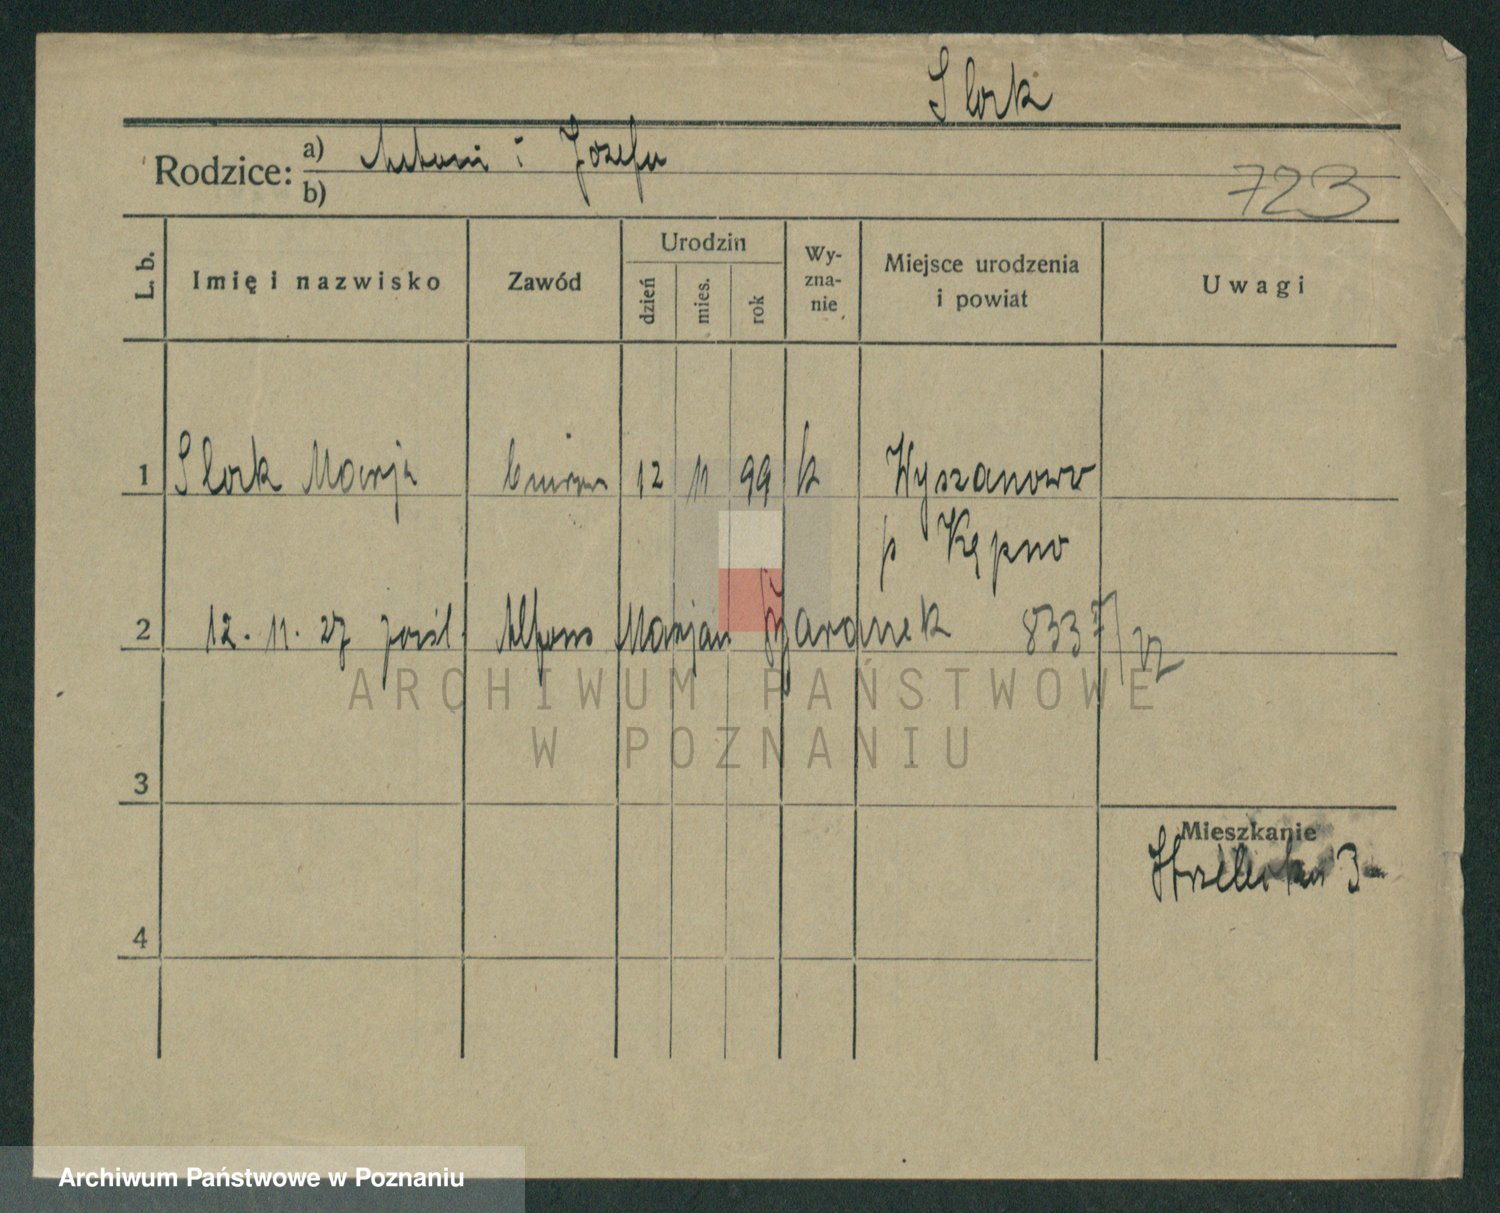 Slork
Rodzice: a) Antoni i Józefa
b)
723
L. b.
Imię i nazwisko
Zawód
Urodzin
dzień
mies.
rok
Wy-
zna-
nie
Miejsce urodzenia
i powiat
Uwagi
1 Slork Marja 12 11 99 k Wyszanowo
p Kępno
2 12. 11. 27 pośl. Alfons Marjan 833
3
4
Mieszkanie
3
ARCHIWUM PAŃSTWOWE
W POZNANIU
Archiwum Państwowe w Poznaniu